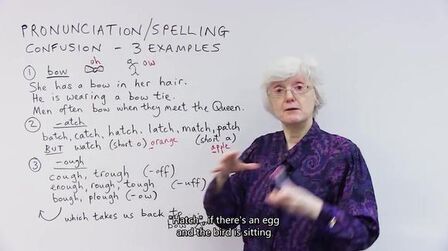 PRONUNCIATION/SPELLING
CONFUSION - 3 EXAMPLES
oh ow
① bow
She has a bow in her hair.
He is wearing a bow tie.
Men often bow when they meet the Queen.
② -atch
batch, catch, hatch, latch, match, patch
BUT watch (short o) orange (short a) apple
③ -ough
cough, trough (-off)
enough, rough, tough (-uff)
bough, plough (-ow)
which takes us back to
bow
"Hatch", if there's an egg
and the bird is sitting